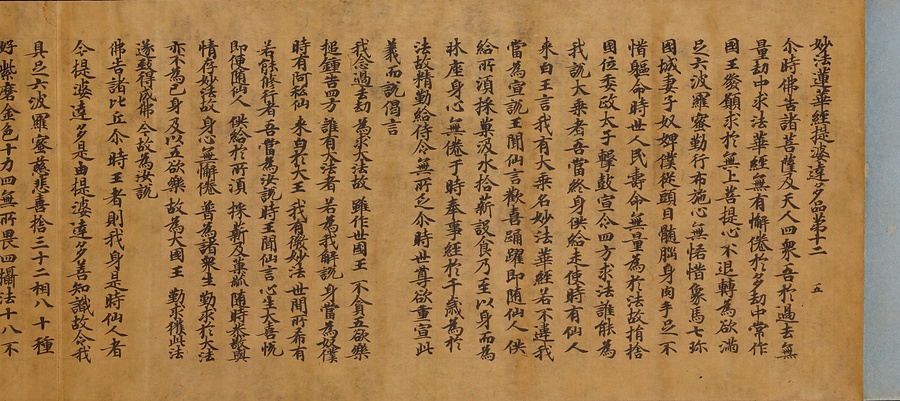 妙法蓮華經提婆達多品第十二 五
尒時佛告諸菩薩及天人四衆吾於過去無
量劫中求法華經無有懈倦於多劫中常作
國王發願求於無上菩提心不退轉為欲滿
足六波羅蜜勤行布施心無悋惜象馬七珎
國城妻子奴婢僕從頭目髓腦身肉手足不
惜軀命時世人民壽命無量為於法故捐捨
國位委政太子擊鼓宣令四方求法誰能為
我說大乘者吾當終身供給走使時有仙人
來白王言我有大乘名妙法華經若不違我
當為宣說王聞仙言歡喜踊躍即随仙人供
給所湏採菓汲水拾薪設食乃至以身而為
牀座身心無倦于時奉事經於千歲為於
法故精勤給侍令無所乏尒時世尊欲重宣此
義而說偈言
我念過去劫 為求大法故 雖作世國王 不貪五欲樂
搥鍾告四方 誰有大法者 若為我解說 身當為奴僕
時有阿私仙 來白於大王 我有微妙法 世間所希有
若能修行者 吾當為汝說 時王聞仙言 心生大喜悅
即便随仙人 供給於所湏 採薪及菓蓏 随時恭敬與
情存妙法故 身心無懈倦 普為諸衆生 勤求於大法
亦不為己身 及以五欲樂 故為大國王 勤求獲此法
遂致得成佛 今故為汝說
佛告諸比丘尒時王者則我身是時仙人者
今提婆達多是由提婆達多善知識故令我
具足六波羅蜜慈悲喜捨三十二相八十種
好紫磨金色十力四無所畏四攝法十八不